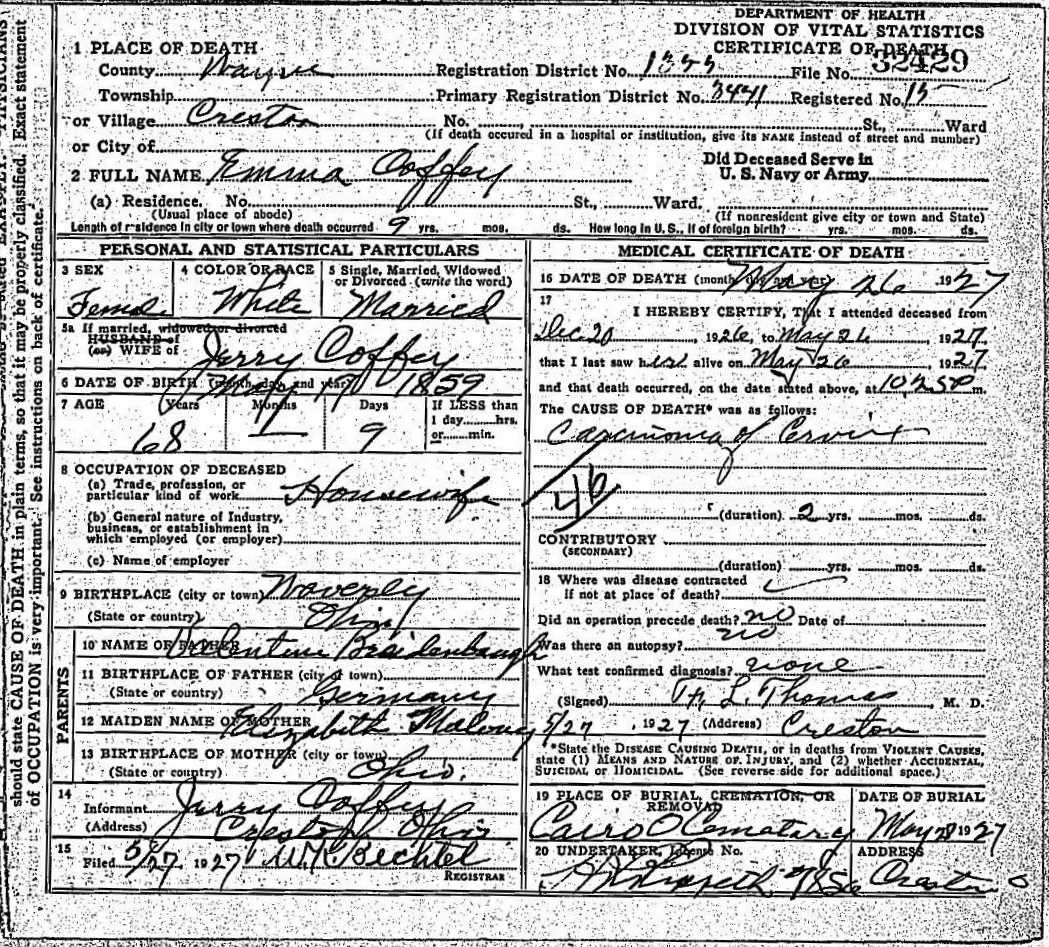 DEPARTMENT OF HEALTH
DIVISION OF VITAL STATISTICS
CERTIFICATE OF DEATH
1 PLACE OF DEATH
County Wayne Registration District No. File No. 32429
Township Primary Registration District No. 3441 Registered No. 15
or Village Creston No. St., Ward
(If death occured in a hospital or institution, give its NAME instead of street and number)
or City of
Did Deceased Serve in
U. S. Navy or Army
2 FULL NAME Emma Coffey
(a) Residence. No. St., Ward.
(Usual place of abode) (If nonresident give city or town and State)
Length of residence in city or town where death occurred 9 yrs. mos. ds. How long in U.S., if of foreign birth? yrs. mos. ds.
PERSONAL AND STATISTICAL PARTICULARS
3 SEX 4 COLOR OR RACE 5 Single, Married, Widowed
or Divorced (write the word)
Female White Married
5a If married, widowed or divorced
HUSBAND of
(or) WIFE of Jerry Coffey
6 DATE OF BIRTH (month, day and year) 1859
7 AGE Years Months Days If LESS than
1 day hrs.
or min.
68 9
8 OCCUPATION OF DECEASED
(a) Trade, profession, or
particular kind of work Housewife
(b) General nature of Industry,
business, or establishment in
which employed (or employer)
(c) Name of employer
9 BIRTHPLACE (city or town) Waverly
(State or country) Ohio
PARENTS
10 NAME OF FATHER Valentine Braidenbaugh
11 BIRTHPLACE OF FATHER (city or town)
(State or country) Germany
12 MAIDEN NAME OF MOTHER Elizabeth
13 BIRTHPLACE OF MOTHER (city or town)
(State or country) Ohio.
14
Informant Jerry Coffey
(Address) Creston Ohio
15
Filed 5/27 1927 Bechtel
REGISTRAR
MEDICAL CERTIFICATE OF DEATH
16 DATE OF DEATH (month, day and year) May 26 1927
17
I HEREBY CERTIFY, That I attended deceased from
Dec. 20, 1926, to May 26 1927.
that I last saw her alive on May 26 1927
and that death occurred, on the date stated above, at m.
The CAUSE OF DEATH* was as follows:
Carcinoma of Cervix
46
(duration) 2 yrs. mos. ds.
CONTRIBUTORY
(SECONDARY)
(duration) yrs. mos. ds.
18 Where was disease contracted
if not at place of death?
Did an operation precede death? no Date of
Was there an autopsy? no
What test confirmed diagnosis? none
(Signed) L. Thomas, M. D.
5/27, 1927 (Address) Creston
*State the DISEASE CAUSING DEATH, or in deaths from VIOLENT CAUSES,
state (1) MEANS AND NATURE OF INJURY, and (2) whether ACCIDENTAL,
SUICIDAL or HOMICIDAL. (See reverse side for additional space.)
19 PLACE OF BURIAL, CREMATION, OR
REMOVAL DATE OF BURIAL
Cairo O Cematary May 28 1927
20 UNDERTAKER, License No. ADDRESS
Creston
should state CAUSE OF DEATH in plain terms, so that it may be properly classified. Exact statement
of OCCUPATION is very important. See instructions on back of certificate.